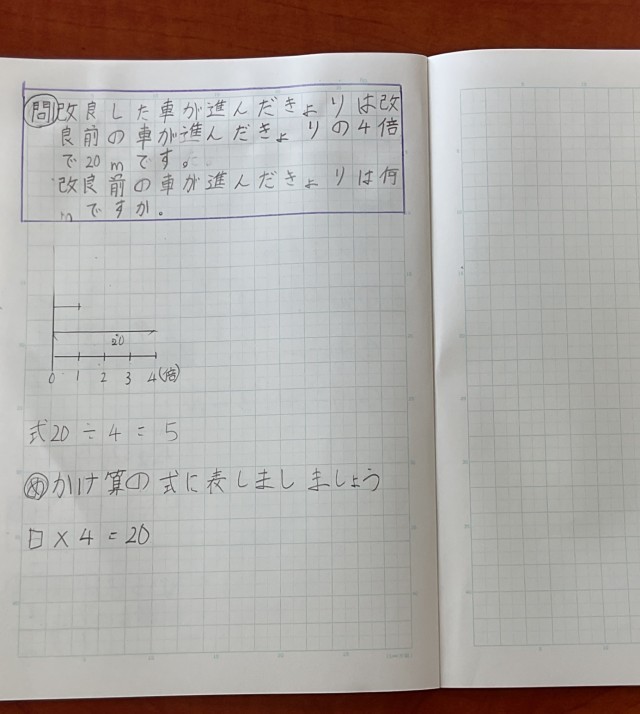 問 改良した車が進んだきょりは改
良前の車が進んだきょりの4倍
で20mです。
改良前の車が進んだきょりは何
mですか。
20
0 1 2 3 4(倍)
式20÷4=5
め かけ算の式に表しまし ましょう
□×4=20